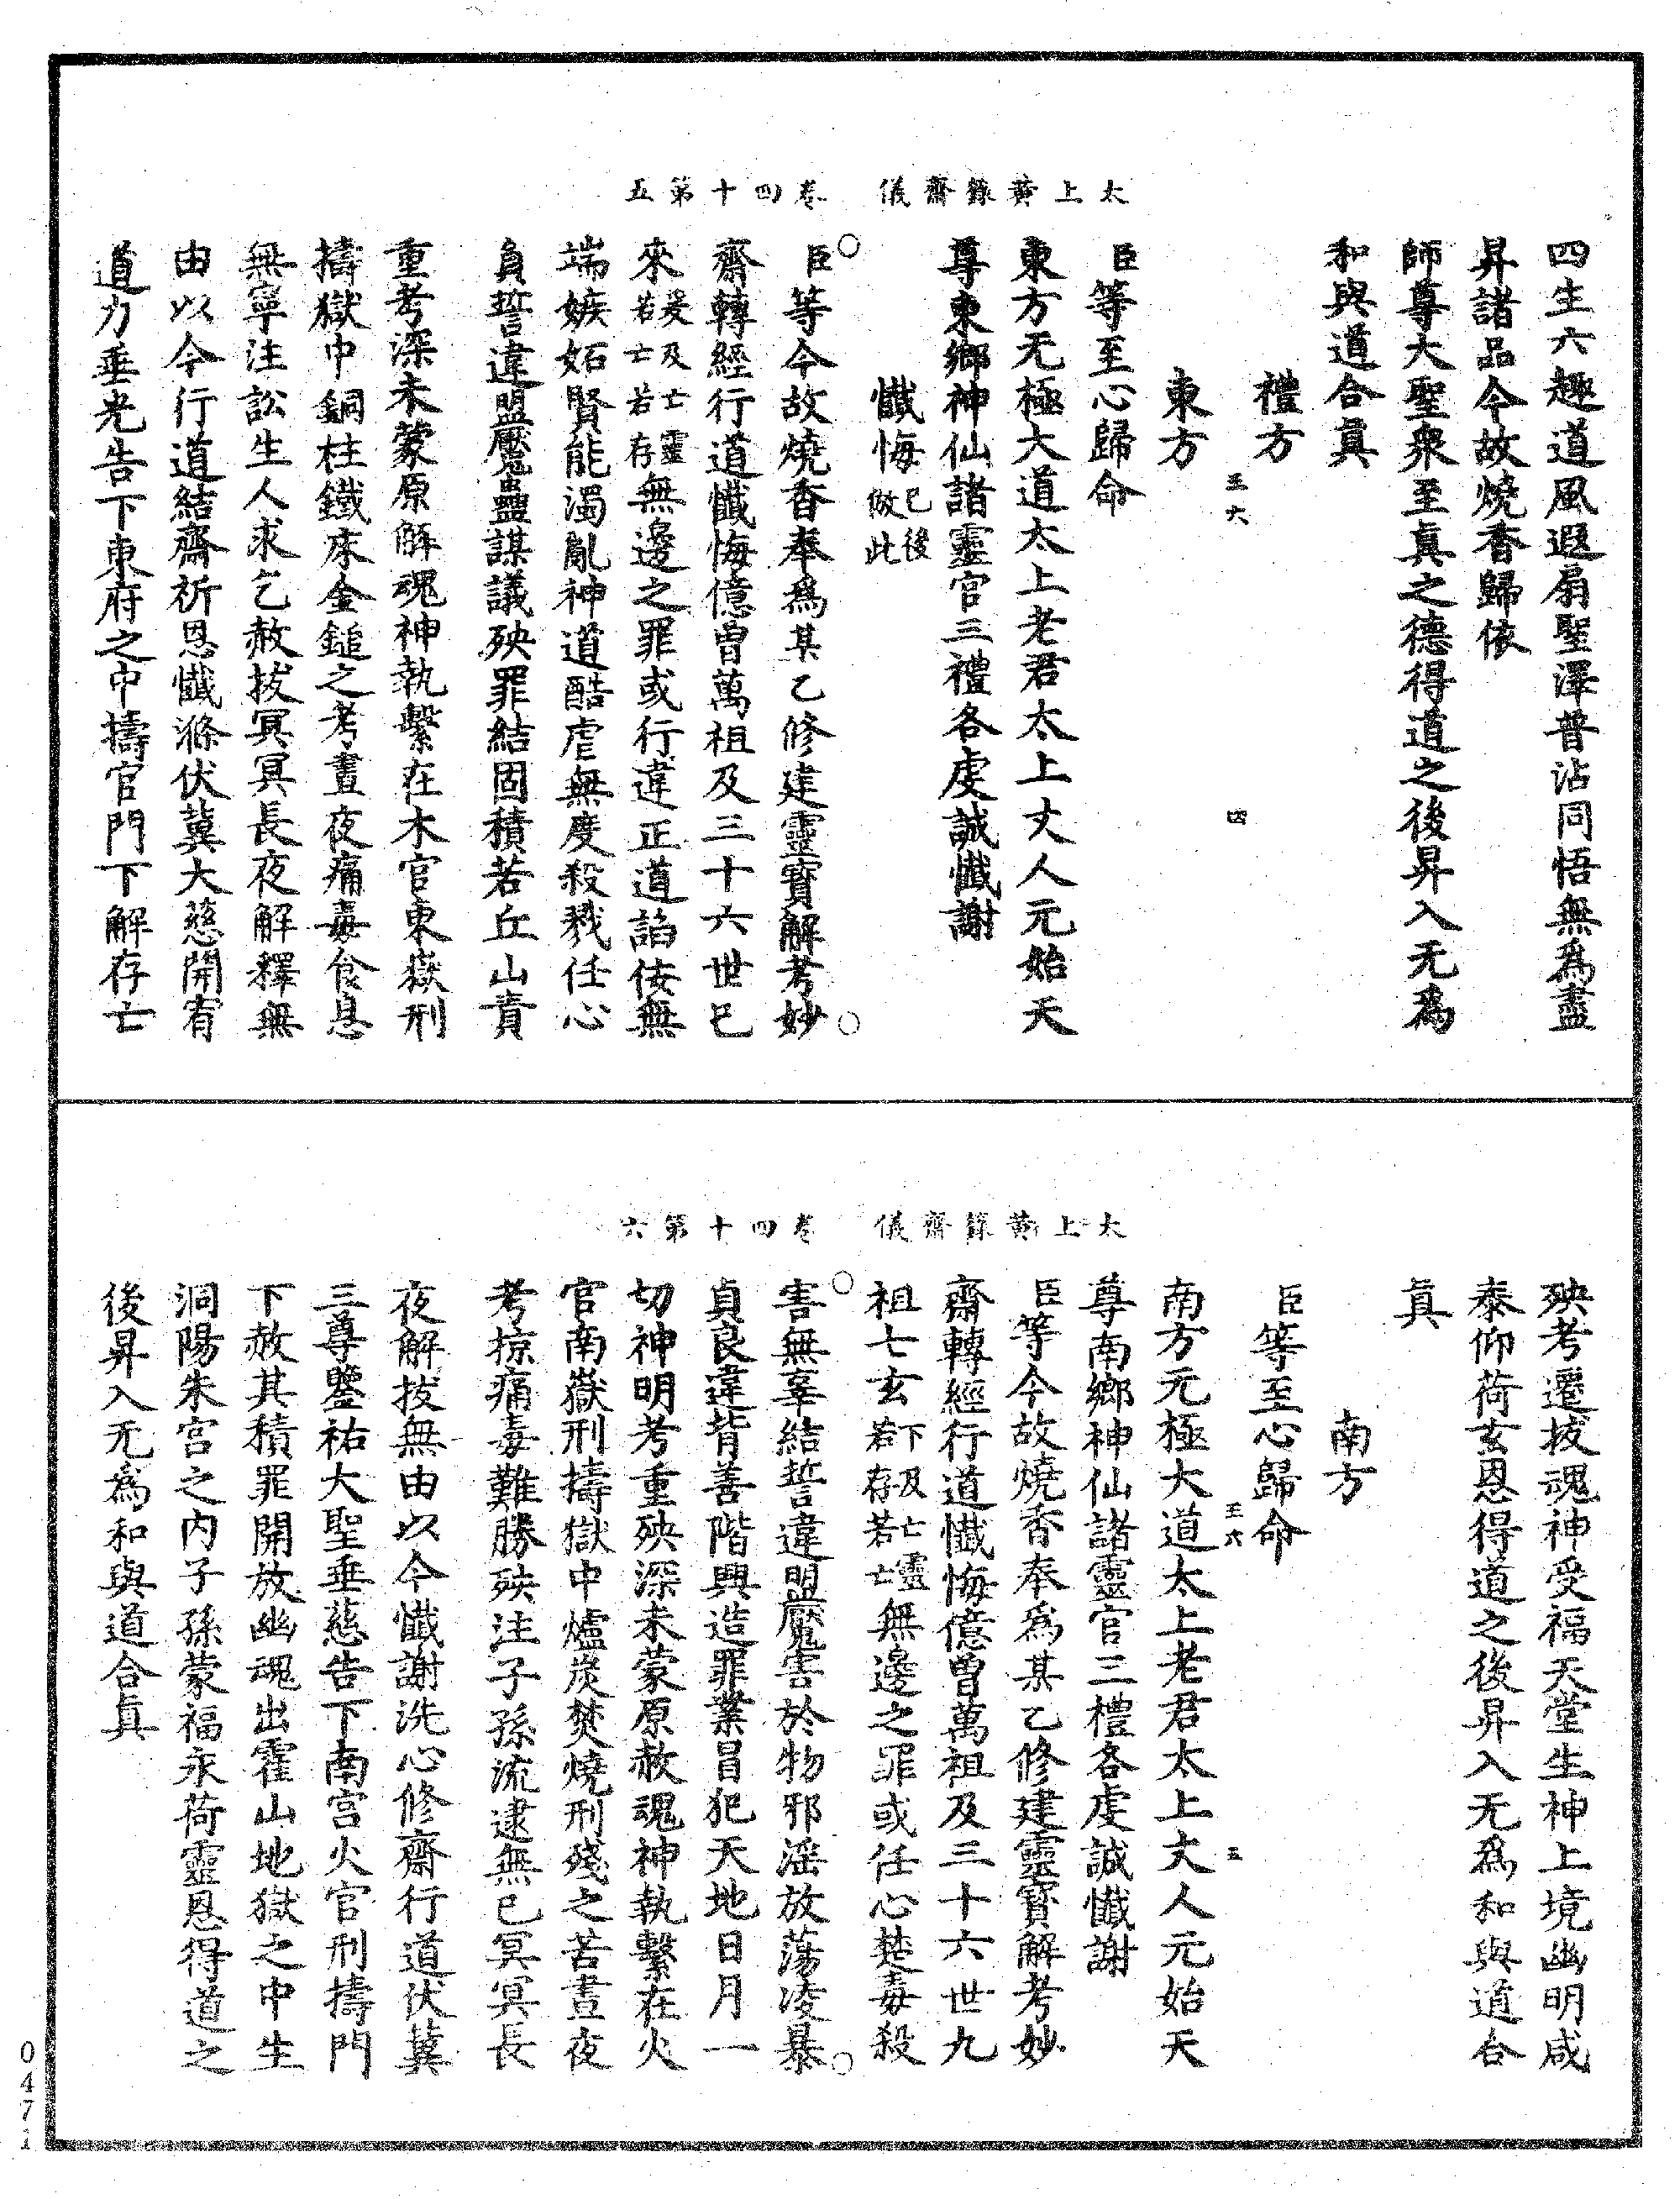 太上黃籙齋儀　卷四十第五
四生六趣道風遐扇聖澤普沾同悟無爲盡
昇諸品今故燒香歸依
師尊大聖衆至眞之德得道之後昇入无爲
和與道合眞
禮方
王六　四
東方
臣等至心歸命
東方无極大道太上老君太上丈人元始天
尊東鄉神仙諸靈官三禮各虔誠懺謝
懺悔已後倣此
臣等今故燒香奉爲某乙修建靈寶解考妙
齋轉經行道懺悔億曾萬祖及三十六世已
來爰及亡靈若亡若存無邊之罪或行違正道諂佞無
端嫉妬賢能濁亂神道酷虐無度殺戮任心
負誓違盟魘蠱謀議殃罪結固積若丘山責
重考深未蒙原解魂神執繫在木官東嶽刑
擣獄中銅柱鐵床金鎚之考晝夜痛毒食息
無寧注訟生人求乞赦拔冥冥長夜解釋無
由以今行道結齋祈恩懺滌伏冀大慈開宥
道力垂光告下東府之中擣官門下解存亡
太上黃籙齋儀　卷四十第六
殃考遷拔魂神受福天堂生神上境幽明咸
泰仰荷玄恩得道之後昇入无爲和與道合
眞
南方
臣等至心歸命
王六　五
南方元極大道太上老君太上丈人元始天
尊南鄉神仙諸靈官三禮各虔誠懺謝
臣等今故燒香奉爲某乙修建靈寶解考妙
齋轉經行道懺悔億曾萬祖及三十六世九
祖七玄下及亡靈若存若亡無邊之罪或任心楚毒殺
害無辜結誓違盟魘害於物邪淫放蕩凌暴
貞良違背善階興造罪業冒犯天地日月一
切神明考重殃深未蒙原赦魂神執繫在火
官南嶽刑擣獄中爐炭焚燒刑殘之苦晝夜
考掠痛毒難勝殃注子孫流逮無已冥冥長
夜解拔無由以今懺謝洗心修齋行道伏冀
三尊鑒祐大聖垂慈告下南宮火官刑擣門
下赦其積罪開放幽魂出霍山地獄之中生
洞陽朱宮之內子孫蒙福永荷靈恩得道之
後昇入无爲和與道合眞
0471